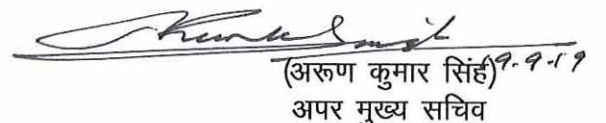 (अरूण कुमार सिंह) 9.9.19
अपर मुख्य सचिव